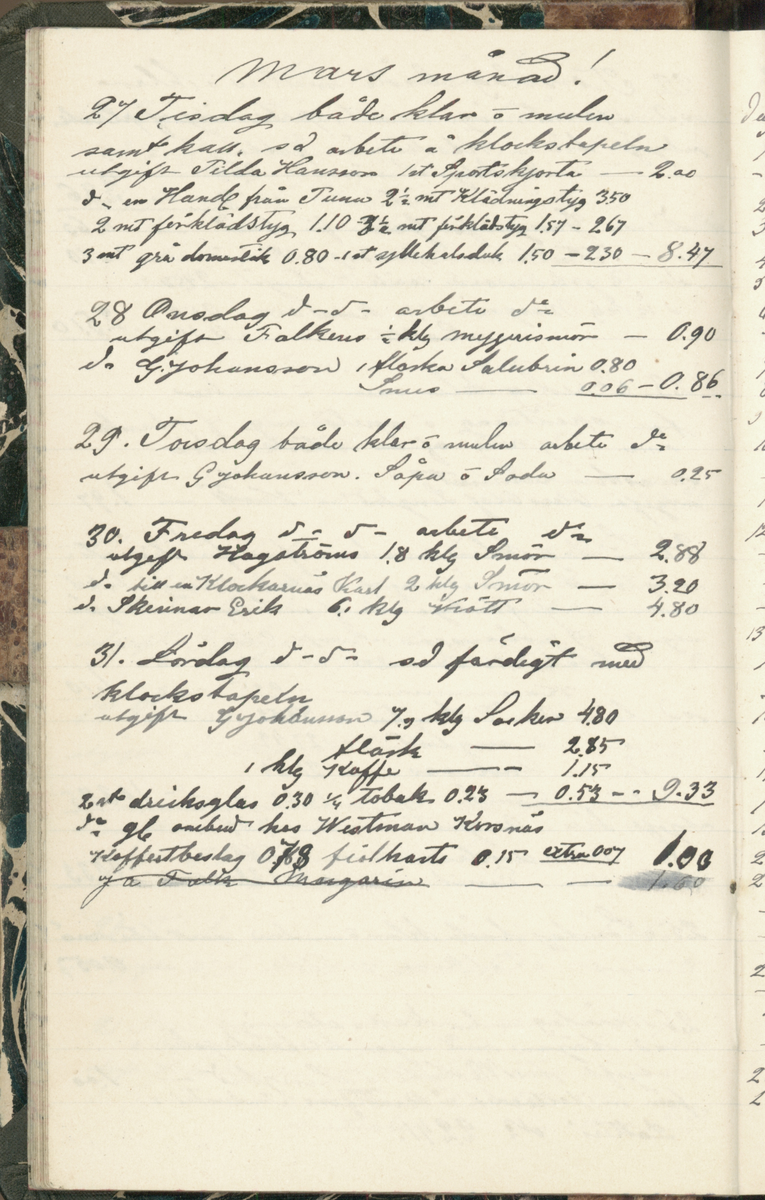 Mars månad!
27 Tisdag både klar o mulen
samt kall. så arbete å klockstapeln
utgift Tilda Hansson 1 st Sportskjorta — 2.00
do en Handl från Tuna 2½ mt Klädningstyg 3.50
2 mt förklädstyg 1.10 3½ mt förklädstyg 1.57 - 267
3 mt grå domestik 0.80 - 1 st sylkehalsduk 1.50 - 230 - 8.47
28 Onsdag d - d - arbete do
utgift Falkens ½ klg mejerismör — 0.90
do G Johansson 1 flaska Salubrin 0.80
Snus — 0.06 - 0.86
29. Torsdag både klar o mulen arbete do
utgift G Johansson. Såpa o Soda — 0.25
30. Fredag d - d - arbete do
utgift Hagströms 1.8 klg Smör — 2.88
do till en Klockarnäs Karl 2 klg Smör — 3.20
do Skinnar Erik 6.1 klg Kött — 4.80
31. Lördag d - d - så färdigt med
klockstapeln
utgift G Johansson 7.9 klg Socker 4.80
fläsk — 2.85
1 klg Kaffe — 1.15
2 st dricksglas 0.30 ¼ tobak 0.23 — 0.53 - - 9.33
do gl ombud hos Westman Korsnäs
Koffertbeslag 0.78 0.15 extra 007 1.00
Falk Margarin — — 1.60